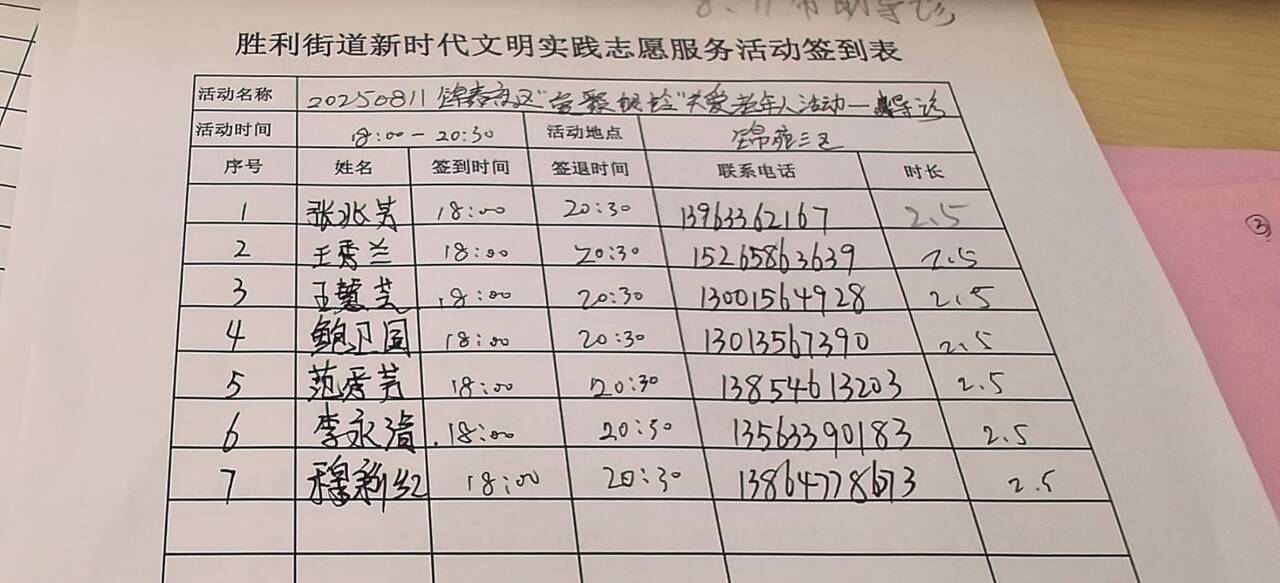 8.11 帮助导诊
胜利街道新时代文明实践志愿服务活动签到表
活动名称 20250811 锦春社区"爱聚银龄"关爱老年人活动—导诊
活动时间 18:00-20:30 活动地点 锦苑三区
序号 姓名 签到时间 签退时间 联系电话 时长
1 张兆芳 18:00 20:30 13963362167 2.5
2 王秀兰 18:00 20:30 15265863639 2.5
3 王慧芸 18:00 20:30 13001564928 2.5
4 鲍卫国 18:00 20:30 13013567390 2.5
5 范秀芳 18:00 20:30 13854613203 2.5
6 李永清 18:00 20:30 13563390183 2.5
7 穆新红 18:00 20:30 13864778673 2.5
③